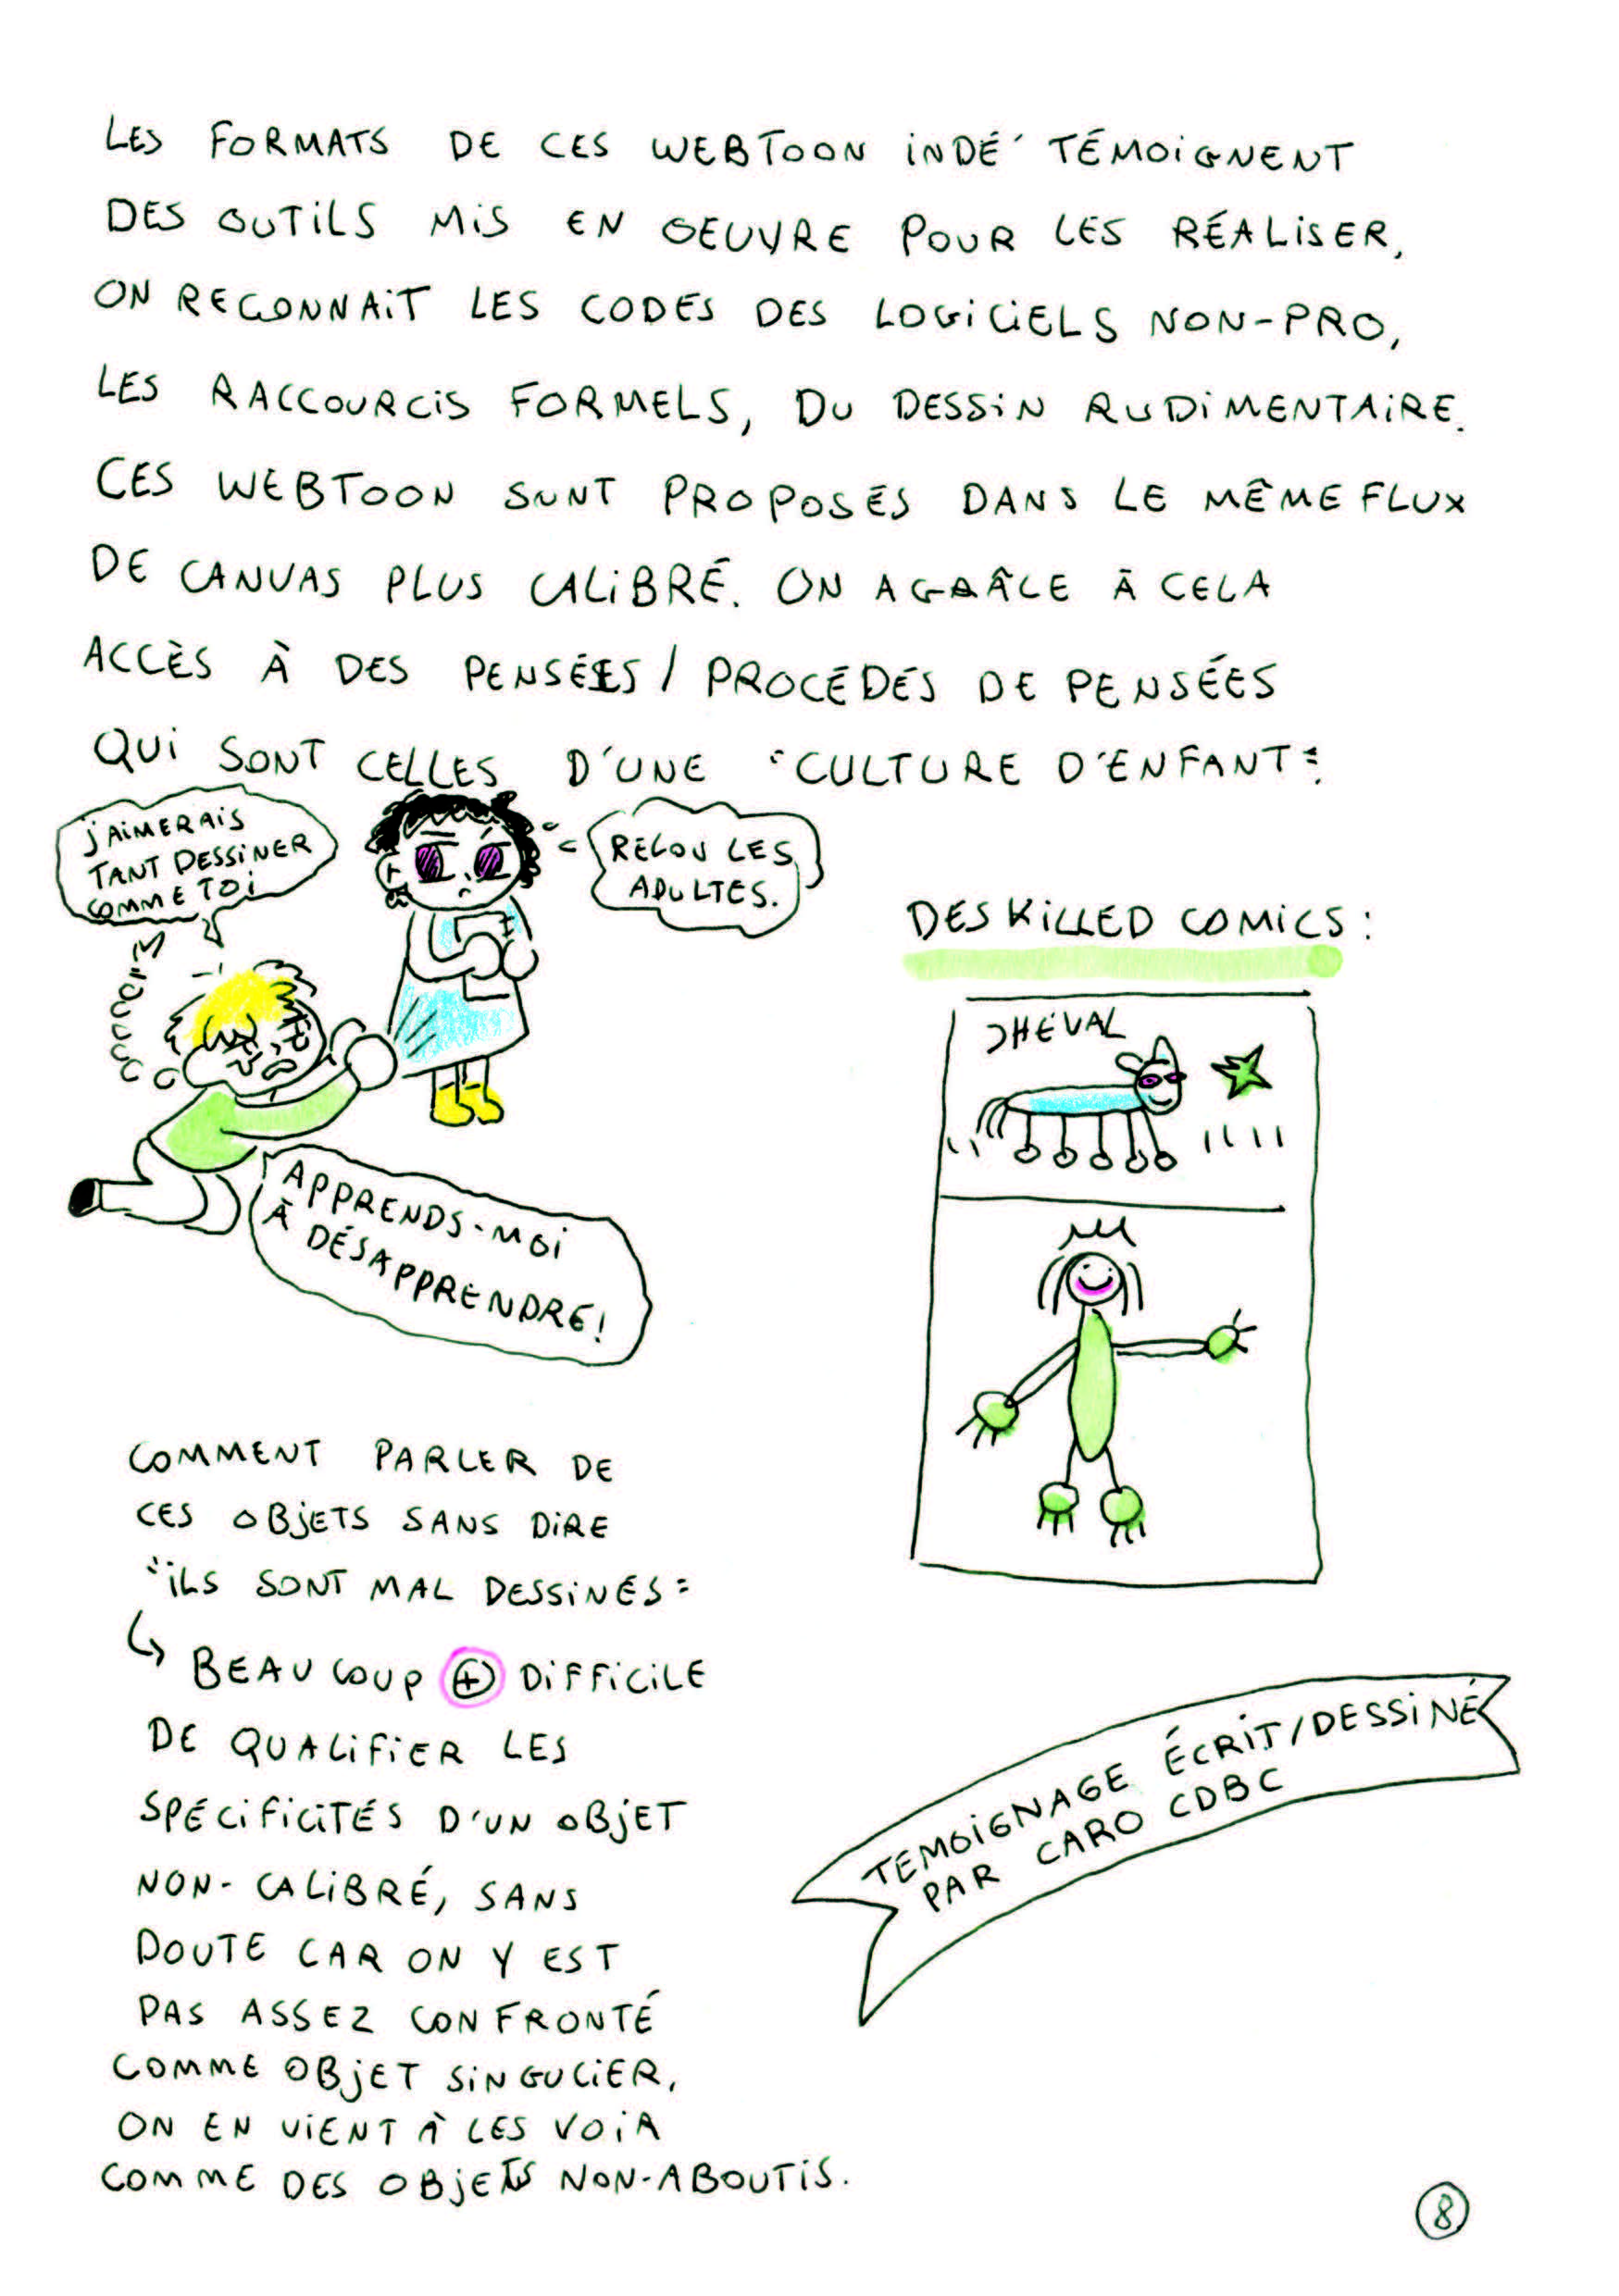 LES FORMATS DE CES WEBTOON INDÉ TÉMOIGNENT
DES OUTILS MIS EN OEUVRE POUR LES RÉALISER,
ON RECONNAIT LES CODES DES LOGICIELS NON-PRO,
LES RACCOURCIS FORMELS, DU DESSIN RUDIMENTAIRE.
CES WEBTOON SONT PROPOSÉS DANS LE MÊME FLUX
DE CANVAS PLUS CALIBRÉ. ON A GRÂCE À CELA
ACCÈS À DES PENSÉES / PROCÉDÉS DE PENSÉES
QUI SONT CELLES D'UNE "CULTURE D'ENFANT".
J'AIMERAIS
TANT DESSINER
COMME TOI
RELOU LES
ADULTES.
APPRENDS-MOI
À DÉSAPPRENDRE!
DESKILLED COMICS :
CHEVAL
COMMENT PARLER DE
CES OBJETS SANS DIRE
"ILS SONT MAL DESSINÉS"
↳ BEAUCOUP + DIFFICILE
DE QUALIFIER LES
SPÉCIFICITÉS D'UN OBJET
NON-CALIBRÉ, SANS
DOUTE CAR ON Y EST
PAS ASSEZ CONFRONTÉ
COMME OBJET SINGULIER,
ON EN VIENT À LES VOIR
COMME DES OBJETS NON-ABOUTIS.
TÉMOIGNAGE ÉCRIT/DESSINÉ
PAR CARO CDBC
8